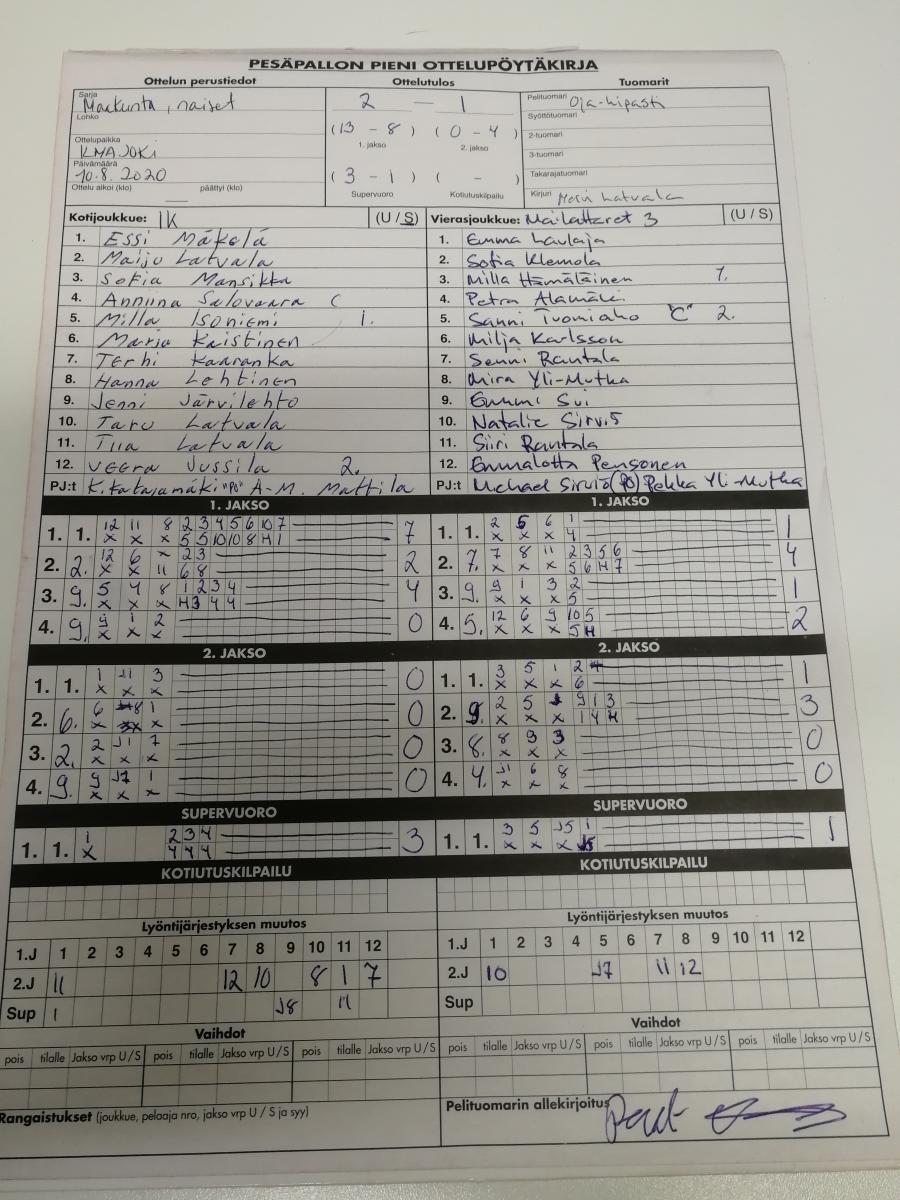 PESÄPALLON PIENI OTTELUPÖYTÄKIRJA
Ottelun perustiedot Ottelutulos Tuomarit
Sarja Maakunta, naiset
Lohko
Ottelupaikka
KMAJOKI
Päivämäärä
10.8.2020
Ottelu alkoi (klo) päättyi (klo)
2 — 1
(13 - 8) (0 - 4)
1. jakso 2. jakso
(3 - 1) ( - )
Supervuoro Kotiutuskilpailu
Pelituomari Oja-Lipasti
Syöttötuomari
2-tuomari
3-tuomari
Takarajatuomari
Kirjuri Latvala
Kotijoukkue: IK (U / S) Vierasjoukkue: Mailattaret 3 (U / S)
1. Essi Mäkelä 1. Emma Laulaja
2. Maiju Latvala 2. Sofia Klemola
3. Sofia Mansikka 3. Milla Hämäläinen 1.
4. Anniina Salovaara C 4. Petra Alamäki
5. Milla Isoniemi 1. 5. Sanni Tuomiaho "C" 2.
6. Marju Raistinen 6. Milja Karlsson
7. Terhi Kaaranka 7. Senni Rantala
8. Hanna Lehtinen 8. Mira Yli-Mutka
9. Jenni Järvilehto 9. Emmi Sui
10. Taru Latvala 10. Natalie Sirviö
11. Tiia Latvala 11. Siiri Rantala
12. Veera Jussila 2. 12. Emmalotta Pensonen
PJ:t K. Katajamäki "PO" A-M. Mattila PJ:t Michael Sirviö (PO) Pekka Yli-Mutka
1. JAKSO 1. JAKSO
1. 1. 12 11 8 2 3 4 5 6 10 7 7 1. 1. 2 5 6 1 1
x x x 5 5 10 10 8 H 1 x x x 4
2. 2. 12 6 - 2 3 2 2. 7. 7 8 11 2 3 5 6 4
x x 11 6 8 x x x 5 6 H 7
3. 9. 5 4 8 1 2 3 4 4 3. 9. 9 1 3 2 1
x x x H 3 4 4 x x x 5
4. 9. 9 1 2 0 4. 5. 12 6 9 10 5 2
x x x x x x 5 H
2. JAKSO 2. JAKSO
1. 1. 1 J1 3 0 1. 1. 3 5 1 2 1
x x x x x x 6
2. 6. 6 8 1 0 2. 9. 2 5 9 1 3 3
x x x x x x 1 4 H
3. 2. 2 J1 7 0 3. 8. 8 9 3 0
x x x x x x
4. 9. 9 J7 1 0 4. 4. J1 6 8 0
x x x x x x
SUPERVUORO SUPERVUORO
1. 1. 1 2 3 4 3 1. 1. 3 5 J5 1 1
x 4 4 4 x x x J5
KOTIUTUSKILPAILU KOTIUTUSKILPAILU
Lyöntijärjestyksen muutos Lyöntijärjestyksen muutos
1.J 1 2 3 4 5 6 7 8 9 10 11 12 1.J 1 2 3 4 5 6 7 8 9 10 11 12
2.J 11 12 10 8 1 7 2.J 10 J7 11 12
Sup 1 J8 11 Sup
Vaihdot Vaihdot
pois tilalle Jakso vrp U / S pois tilalle Jakso vrp U / S pois tilalle Jakso vrp U / S pois tilalle Jakso vrp U / S pois tilalle Jakso vrp U / S pois tilalle Jakso vrp U / S
Rangaistukset (joukkue, pelaaja nro, jakso vrp U / S ja syy) Pelituomarin allekirjoitus